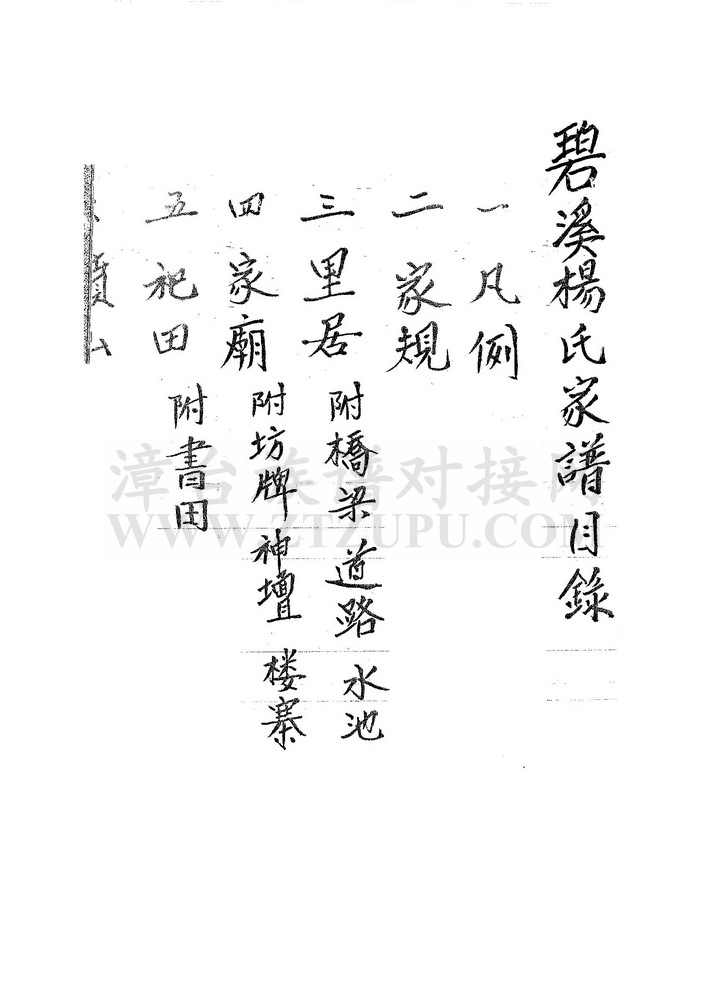 碧溪楊氏家譜目錄
一 凡例
二 家規
三 里居 附橋梁 道路 水池
四 家廟 附坊牌 神壇 楼寨
五 祀田 附書田
漳台族谱对接网
WWW.ZTZUPU.COM